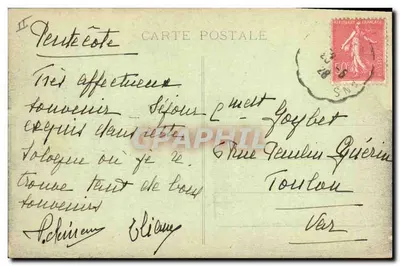 II
CARTE POSTALE
Pentecôte
Très affectueux
souvenir. Séjour
exquis dans cette
Sologne où je re
trouve tant de bons
souvenirs
Goybet
6 rue Paulin Guérin
Toulon
Var
CPARPHIL